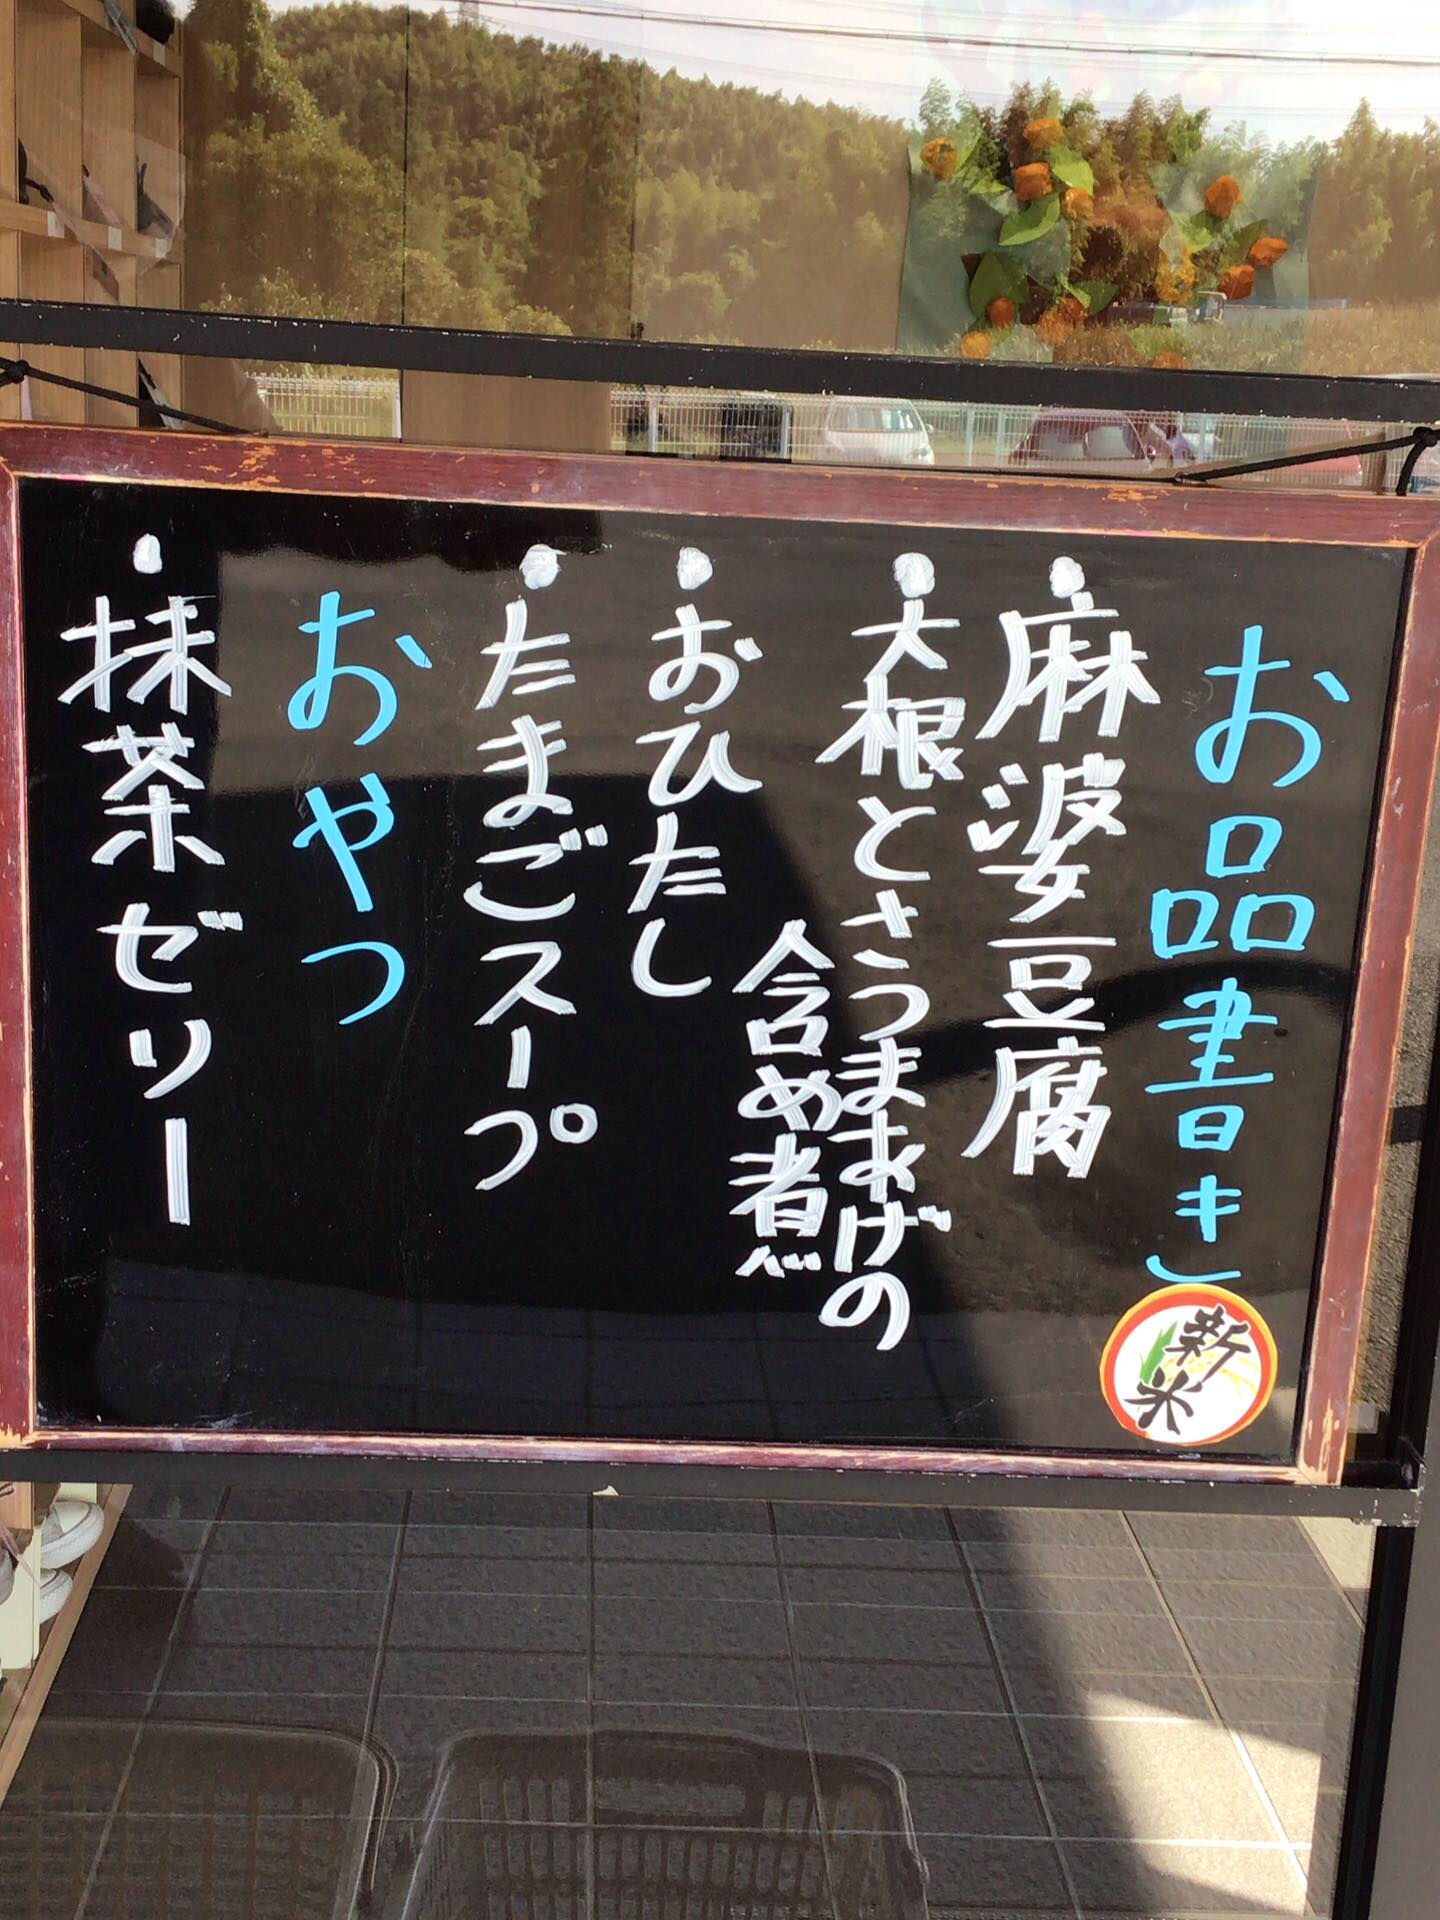 お品書き
・麻婆豆腐
・大根とさつまあげの
含め煮
・おひたし
・たまごスープ
おやつ
・抹茶ゼリー
新米